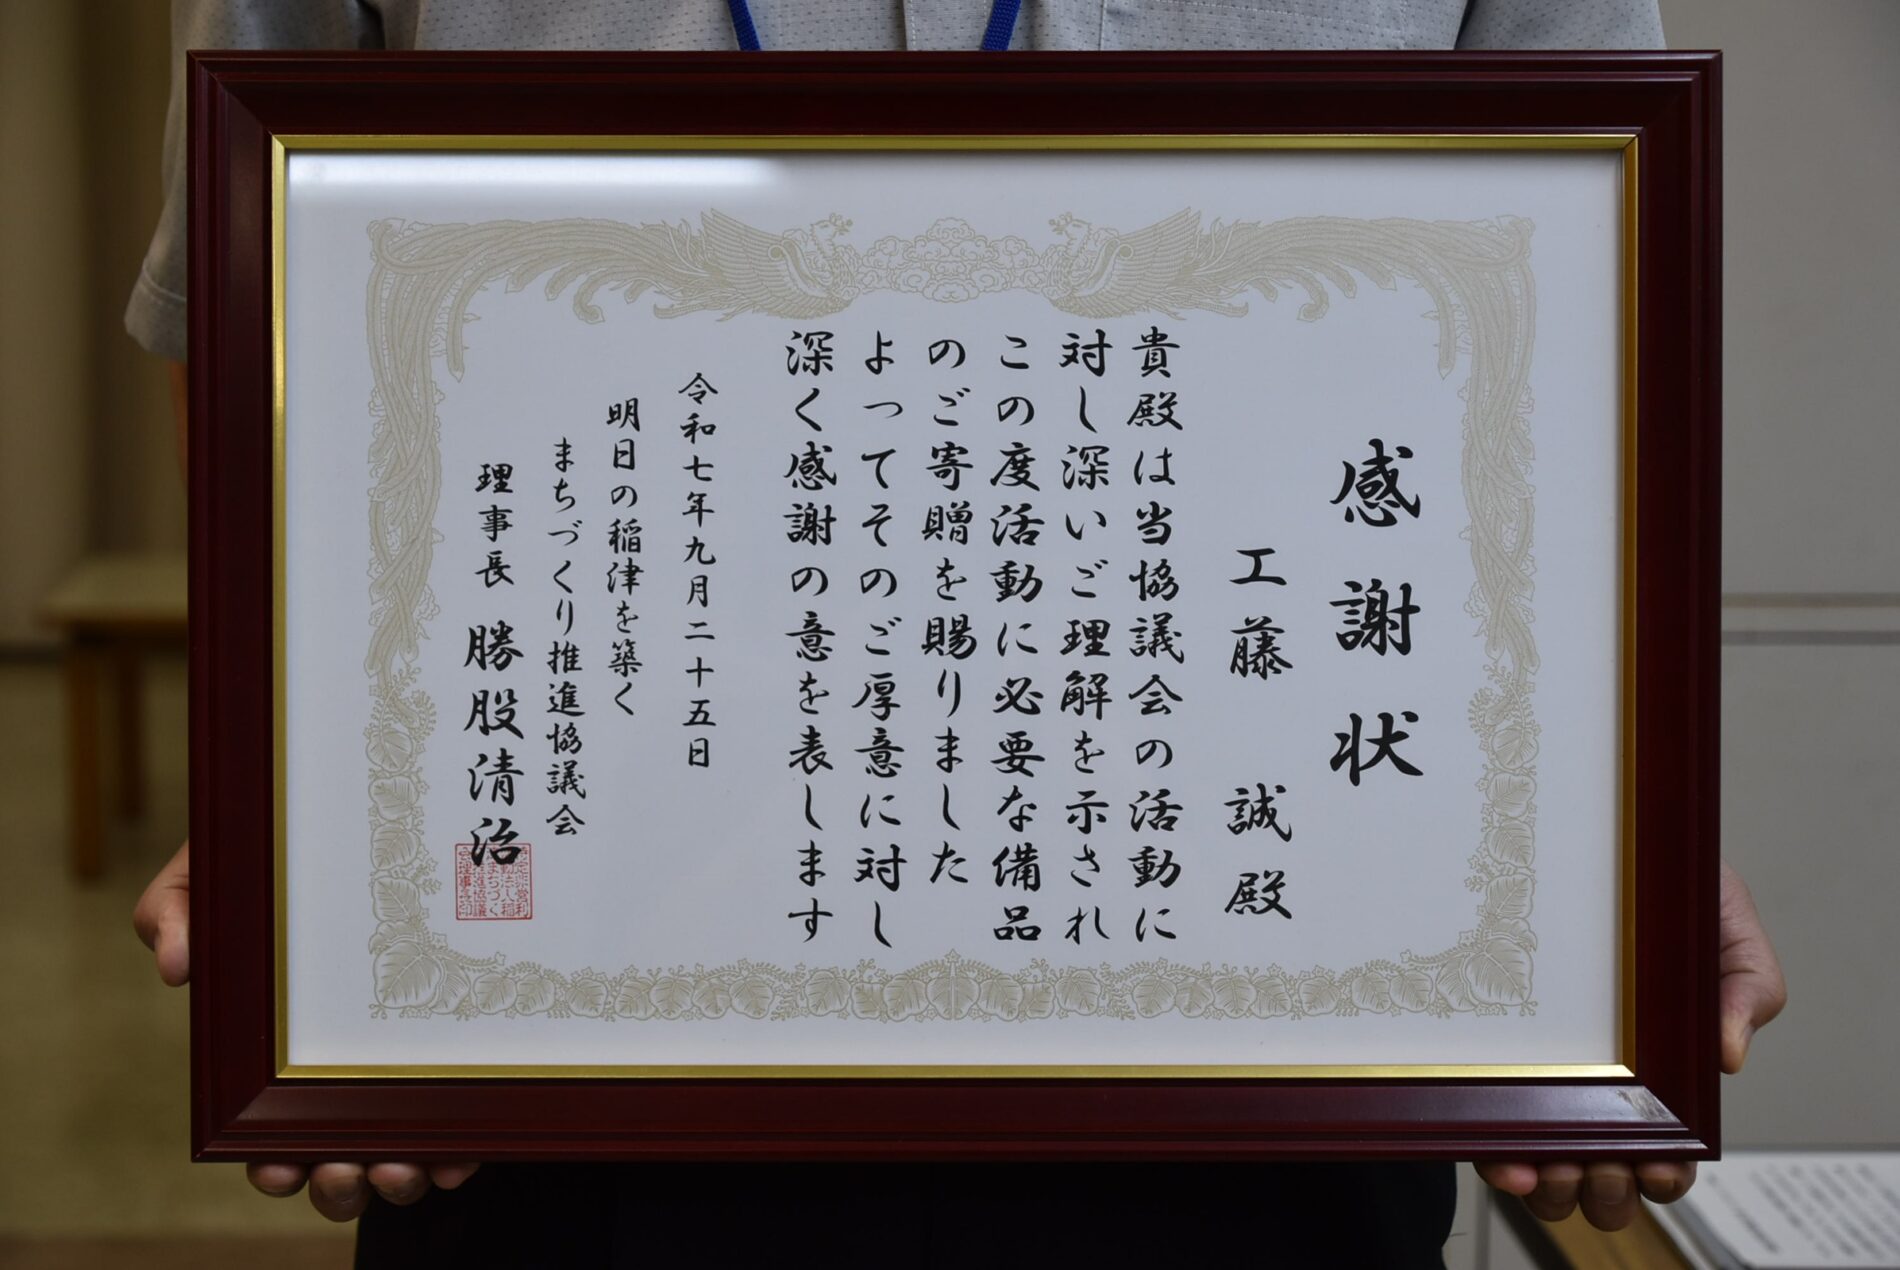 感謝状
工藤 誠 殿
貴殿は当協議会の活動に
対し深いご理解を示され
この度活動に必要な備品
のご寄贈を賜りました
よってそのご厚意に対し
深く感謝の意を表します
令和七年九月二十五日
明日の稲津を築く
まちづくり推進協議会
理事長 勝股清治